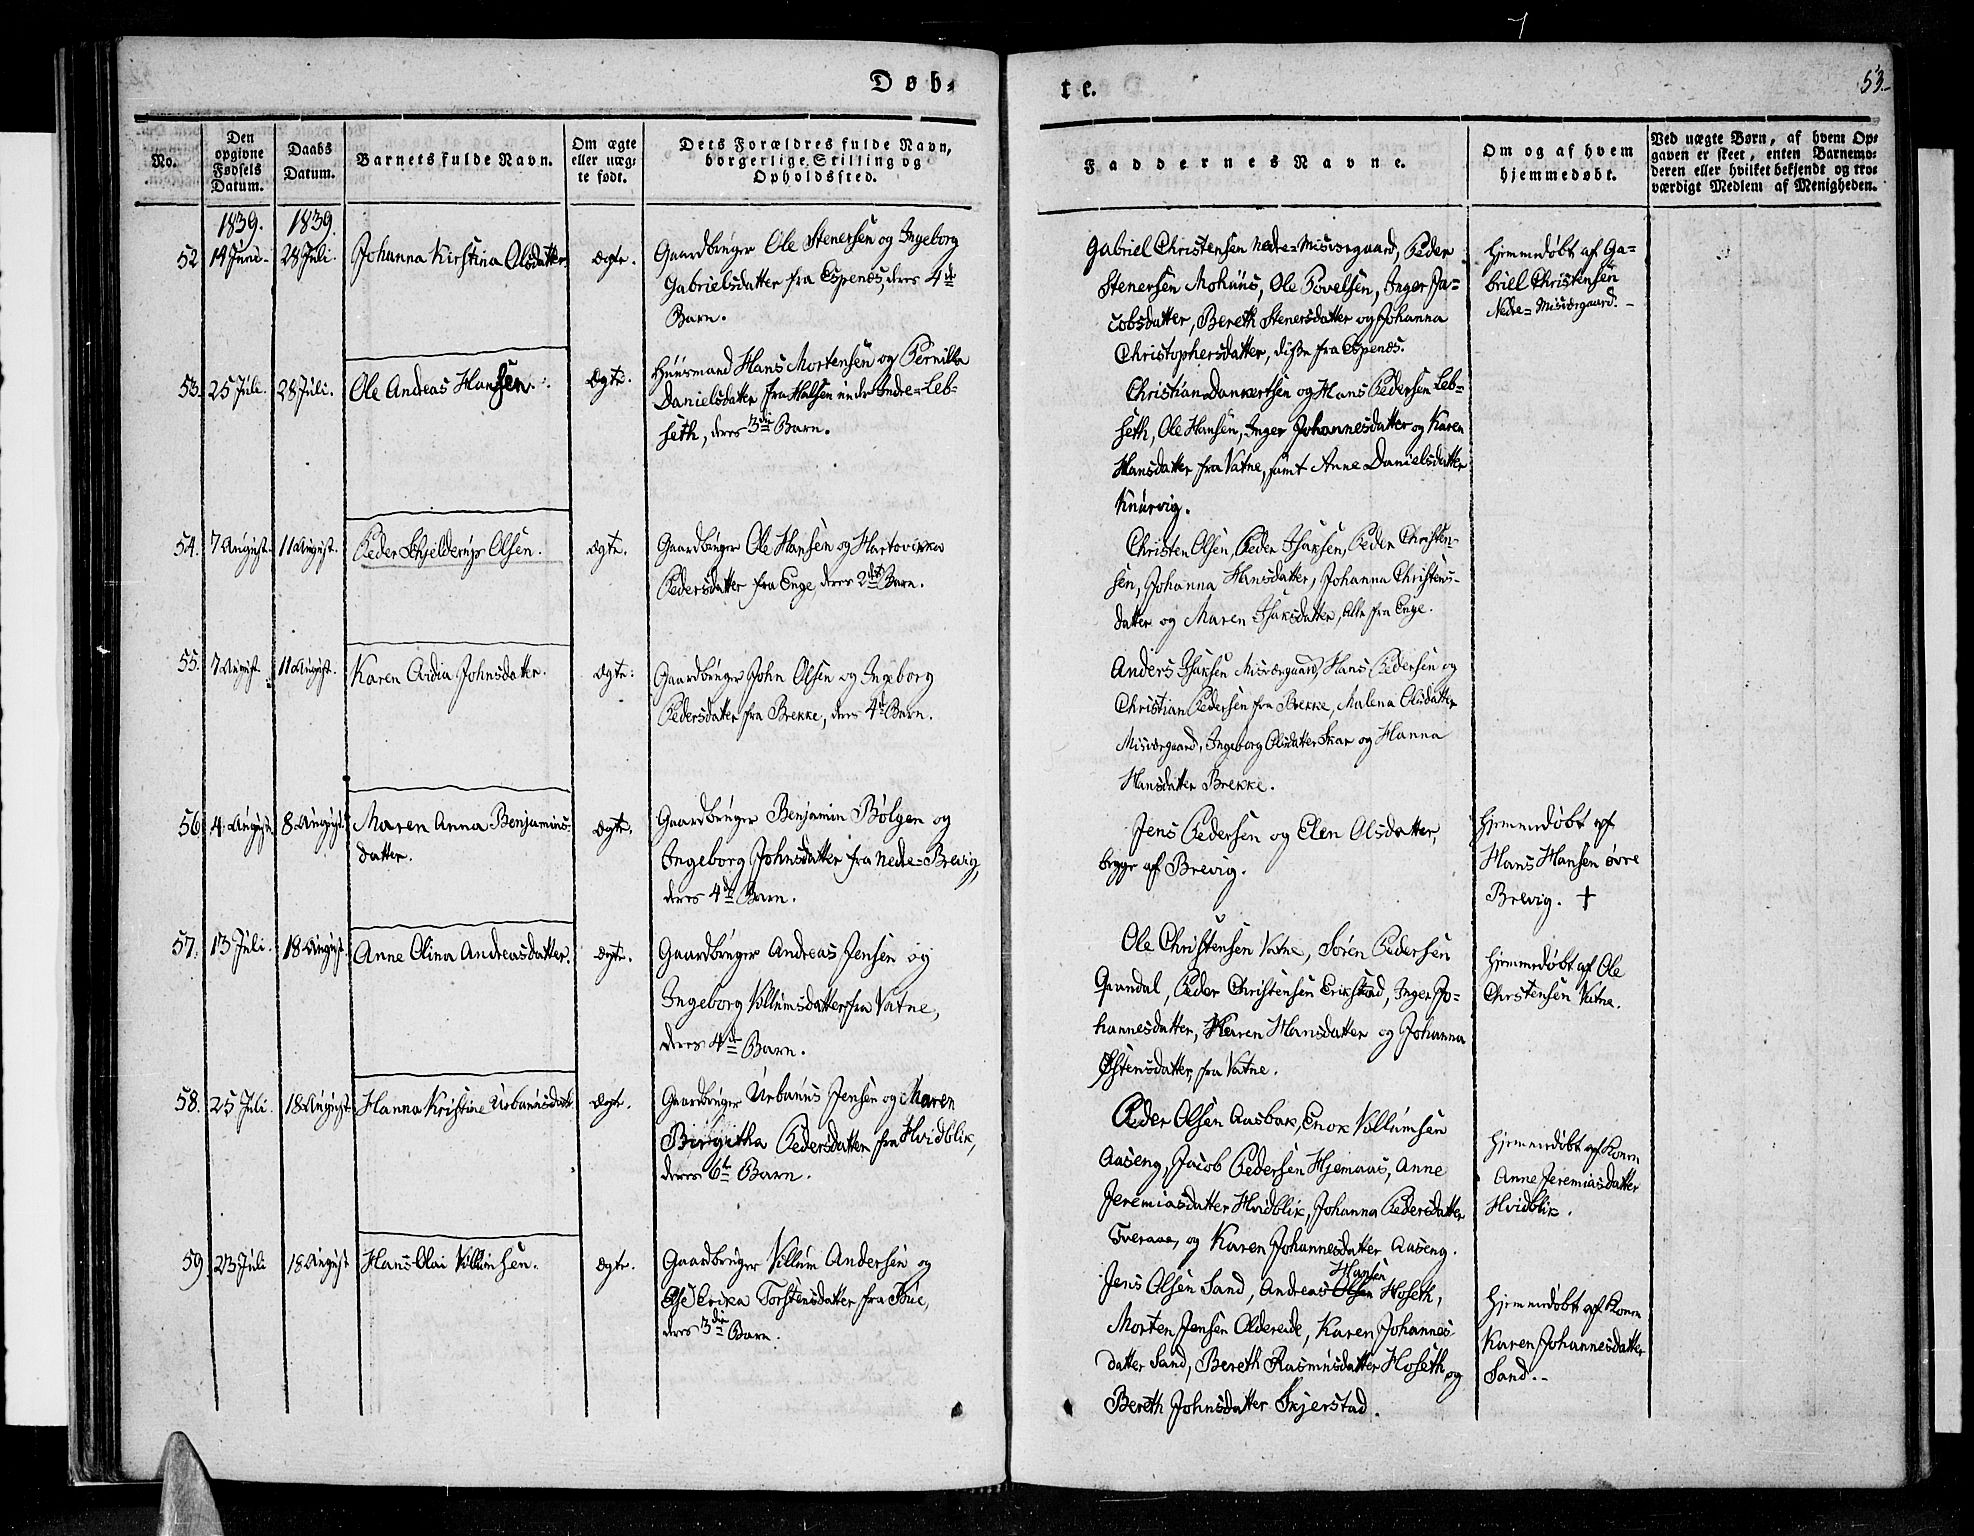 Døb-
No.
Den
opgivne
Fødsels
Datum.
Daabs
Datum.
Barnets fulde Navn.
Om ægte
eller uæg-
te født.
Dets Forældres fulde Navn,
borgerlige Stilling og
Opholdssted.
1839. 1839.
52 19 Juni. 28 Juli. Johanna Kirstina Olsdatter ægte. Gaardbruger Ole Stenersen og Ingeborg
Gabrielsdatter fra Espenæs, deres 4de
Barn.
53. 25 Juli. 28 Juli. Ole Andeas Hansen. ægte. Huusmand Hans Mortensen og Pernilla
Danielsdatter fra Halsen under Indre-Leb-
seth, deres 3die Barn.
54. 7 August. 11 August. Peder Schjelderup Olsen. ægte. Gaardbruger Ole Hansen og Hartovikka
Pedersdatter fra Enge, deres 2det Barn.
55. 7 August. 11 August. Karen Ardia Johnsdatter. ægte. Gaardbruger John Olsen og Ingeborg
Pedersdatter fra Brekke, deres 4de Barn.
56 4 August. 8 August. Maren Anna Benjamins-
datter. ægte. Gaardbruger Benjamin Bølgen og
Ingeborg Johnsdatter fra Nedre-Brevig,
deres 4de Barn.
57. 13 Juli. 18 August. Anne Olina Andreasdatter. ægte. Gaardbruger Andreas Jensen og
Ingeborg Villumsdatter, fra Vatne,
deres 4de Barn.
58. 25 Juli. 18 August. Hanna Kristine Urbanusdatt. ægte. Gaardbruger Urbanus Jensen og Maren
Birgitha Pedersdatter fra Hvidblik,
deres 6te Barn.
59. 23 Juli 18 August Hans Olai Villumsen. ægte. Gaardbruger Villum Andersen og
Erika Torstensdatter fra
deres 3die Barn.
te.
53.
Faddernes Navne.
Om og af hvem
hjemmedøbt.
Ved uægte Børn, af hvem Op-
gaven er skeet, enten Barnemo-
deren eller hvilket bekjendt og tro-
værdigt Medlem af Menigheden.
Gabriel Christensen Nedre-Misværgaard, Peder
Stenersen Mohuus, Ole Povelsen, Inger Ja-
cobsdatter, Bereth Stenersdatter og Johanna
Christophersdatter, disse fra Espenæs.
Hjemmedøbt af Ga-
briel Christensen
Nedre-Misværgaard.
Christian Dankertsen og Hans Pedersen Leb-
seth, Ole Hansen, Inger Johannesdatter og Karen
Hansdatter fra Vatne, samt Anne Danielsdatter
Knurvig.
Christen Olsen, Peder Isaksen, Peder Christen-
sen, Johanna Hansdatter, Johanna Christens-
datter og Maren Isaksdatter, alle fra Enge.
Anders Isaksen Misværgaard, Hans Pedersen og
Christian Pedersen fra Brekke, Malena Olsdatter
Misværgaard, Ingeborg Olsdatter Skar og Hanna
Hansdatter Brekke.
Jens Pedersen og Elen Olsdatter,
begge af Brevig.
Hjemmedøbt af
Hans Hansen øvre
Brevig. †
Ole Christensen Vatne, Sören Pedersen
Qvandal, Peder Christensen Erikstad, Inger Jo-
hannesdatter, Karen Hansdatter og Johanna
Østensdatter, fra Vatne.
Hjemmedøbt af Ole
Christensen Vatne.
Peder Olsen Aasbak, Enok Villumsen
Aaseng, Jacob Pedersen Hjemaas, Anne
Jeremiasdatter Hvidblik, Johanna Pedersdatter
Tveraae, og Karen Johannesdatter Aaseng.
Hjemmedøbt af Konen
Anne Jeremiasdatter
Hvidblik.
Jens Olsen Sand, Andreas Olsen Hansen Hoseth,
Morten Jensen Oldereide, Karen Johannes-
datter Sand, Bereth Rasmusdatter Hoseth og
Bereth Johnsdatter Skjerstad.
Hjemmedøbt af Konen
Karen Johannesdatter
Sand.